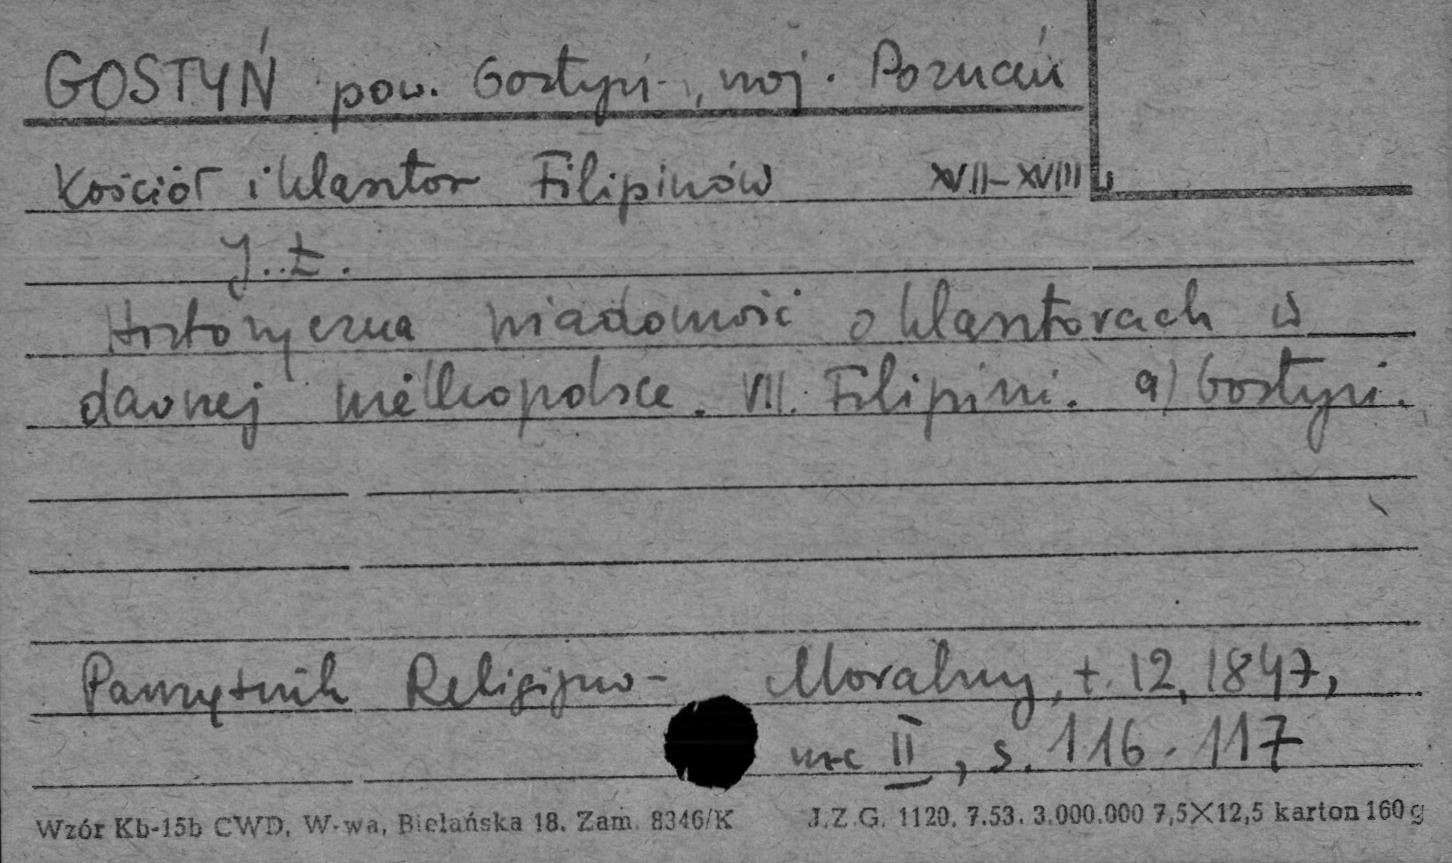 GOSTYŃ pow. Gostyń, woj. Poznań
Kościół i klasztor Filipinów XVII-XVIII
J. Ł.
Historyczna wiadomość o klasztorach w
dawnej Wielkopolsce. VII. Filipini. a) Gostyń.
Pamiętnik Religijno- Moralny, t. 12, 1847,
nr II, s. 116-117
Wzór Kb-15b CWD, W-wa, Bielańska 18. Zam. 8346/K J.Z.G. 1120. 7.53. 3.000.000 7,5×12,5 karton 160 g